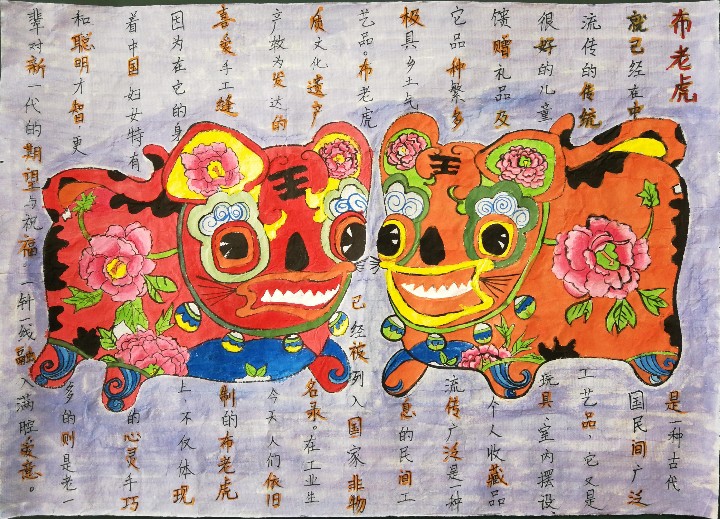 布老虎是一种古代
就已经在中国民间广泛
流传的传统工艺品，它又是
很好的儿童玩具、室内摆设、
馈赠礼品及个人收藏品
它品种繁多流传广泛是一种
极具乡土气息的民间工
艺品。布老虎已经被列入国家非物
质文化遗产名录。在工业生
产极为发达的今天人们依旧
喜爱手工缝制的布老虎
因为在它的身上，不仅体现
着中国妇女特有的心灵手巧
和聪明才智，更多的则是老一
辈对新一代的期望与祝福，一针一线融入满腔爱意。
王
王